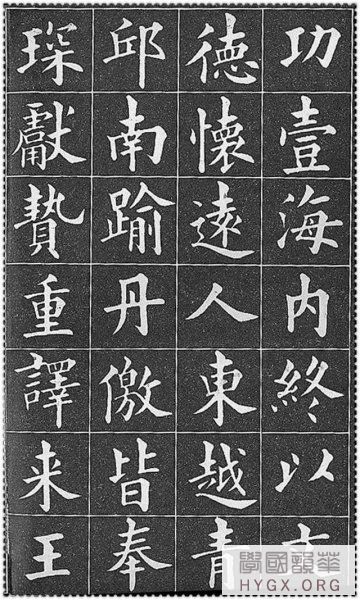 功壹海内終以
德懷遠人東越青
邱南踰丹儌皆奉
琛獻贄重譯来王
華韻國學
HYGX.ORG